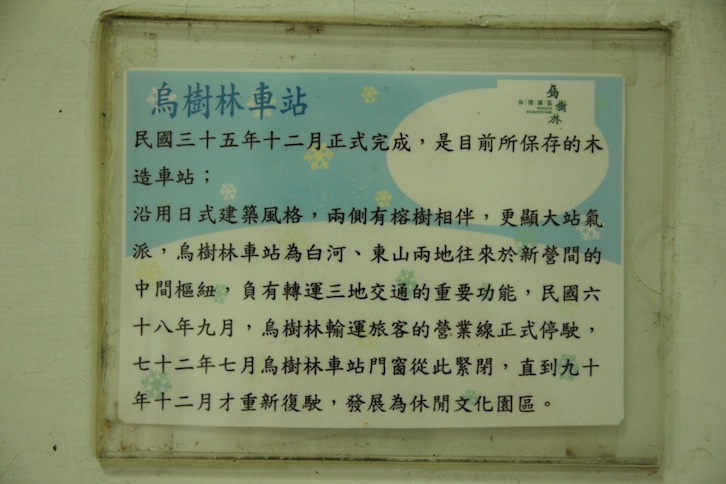 烏樹林車站
烏樹林
休閒園區
民國三十五年十二月正式完成，是目前所保存的木
造車站；
沿用日式建築風格，兩側有榕樹相伴，更顯大站氣
派，烏樹林車站為白河、東山兩地往來於新營間的
中間樞紐，負有轉運三地交通的重要功能，民國六
十八年九月，烏樹林輸運旅客的營業線正式停駛，
七十二年七月烏樹林車站門窗從此緊閉，直到九十
年十二月才重新復駛，發展為休閒文化園區。